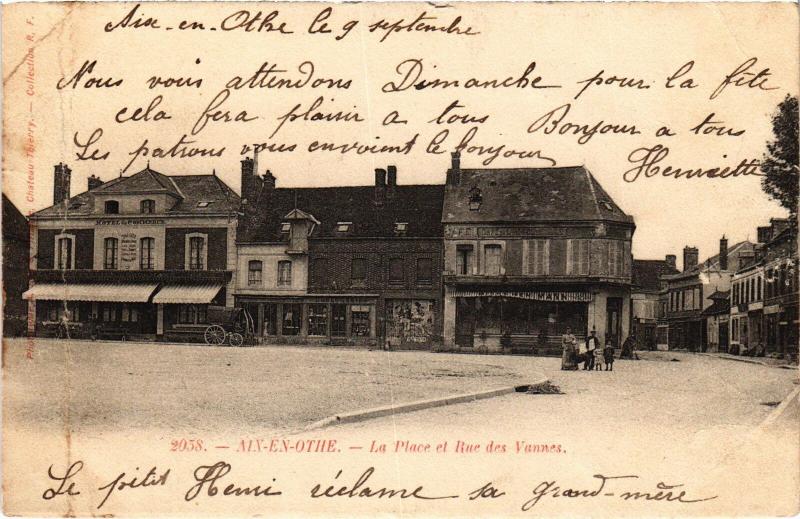 Aix-en-Othe le 9 septendre
Nous vous attendons Dimanche pour la fête
cela fera plaisir a tous Bonjour a tous
Les patrons vous envoient le bonjour
Henriette
Château-Thierry. — Collection R. F.
HOTEL DU COMMERCE
2058. — AIX-EN-OTHE. — La Place et Rue des Vannes.
Le petit Henri réclame sa grand-mère